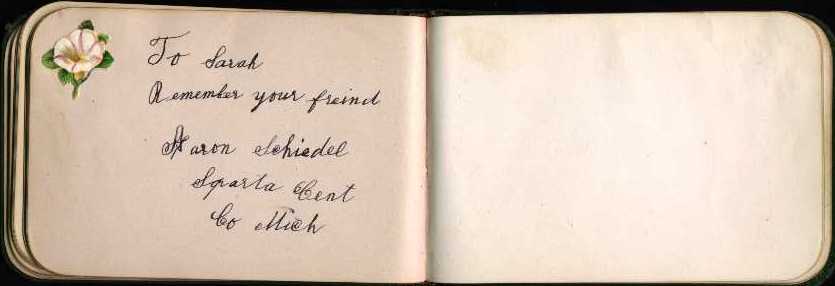 To Sarah
Remember your freind
Aaron Schiedel
Sparta Cent
Co Mich